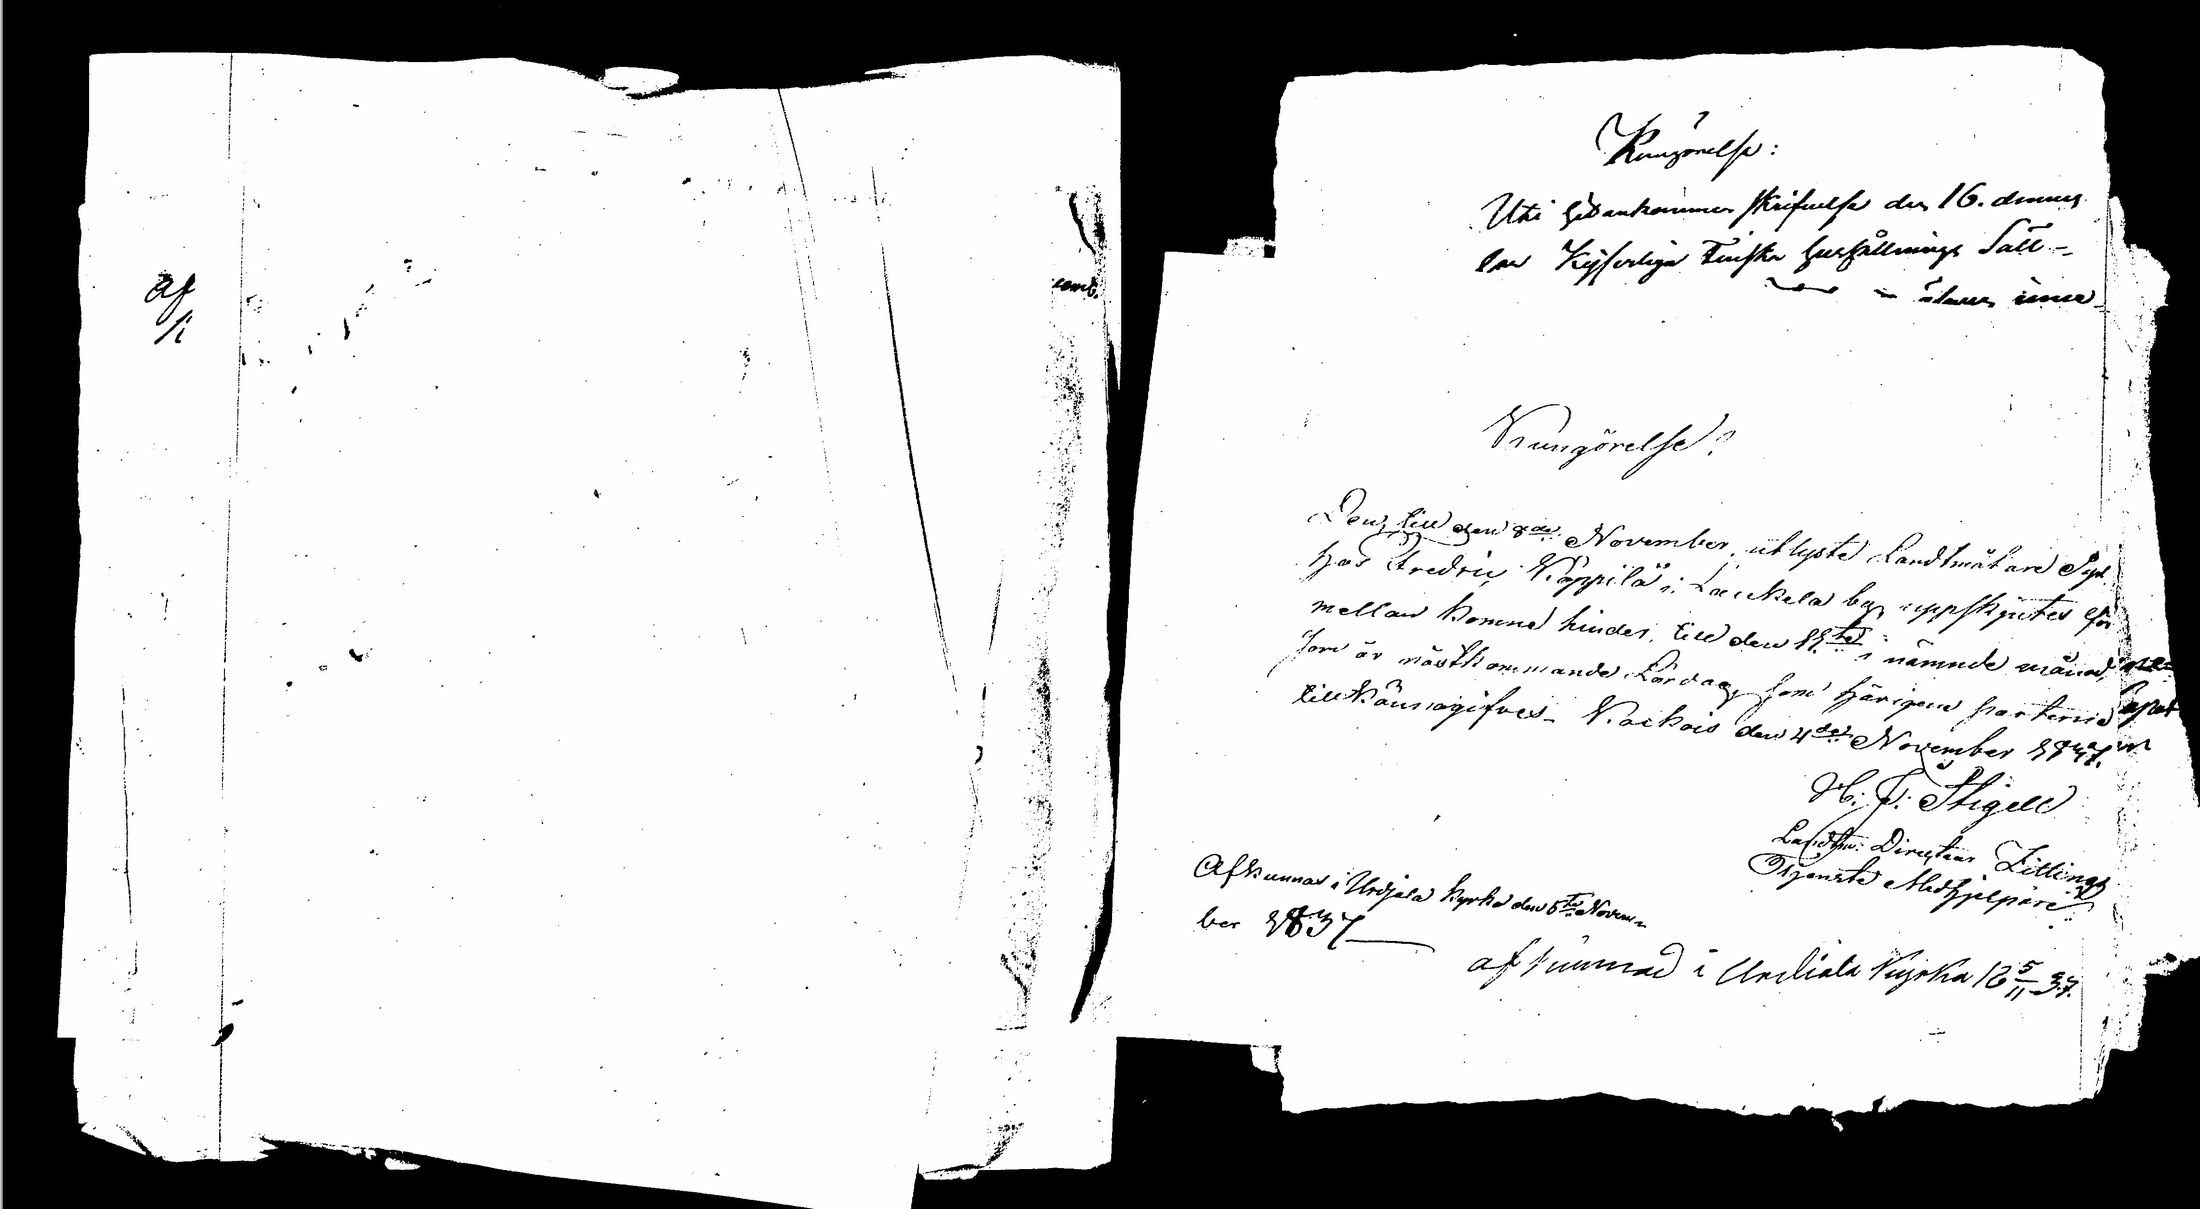 af
Kungörelse:
Uti hit ankommen skrifvelse den 16. dennes
har Kejserliga Finska Hushållnings Säll-
inne
Kungörelse!
Den till den 8de November utlyste Landtmätare Syn
hos Fredric Käppilä i Laukela by uppskjutes för
mellan komne hinder, till den 11te i nämnde månad,
som är nästkommande Lördag, som härigenom parterne
till Kännagifves. Kockois den 4de November 1837.
H: F: Stigell
Landtm: Directeur Zittings
Tjenste Medhjelpare
Afkunnad i Urdjala kyrka den 5te Novem-
ber 1837
afkunnad i Urdiala Kyrka 18 5/11 37.